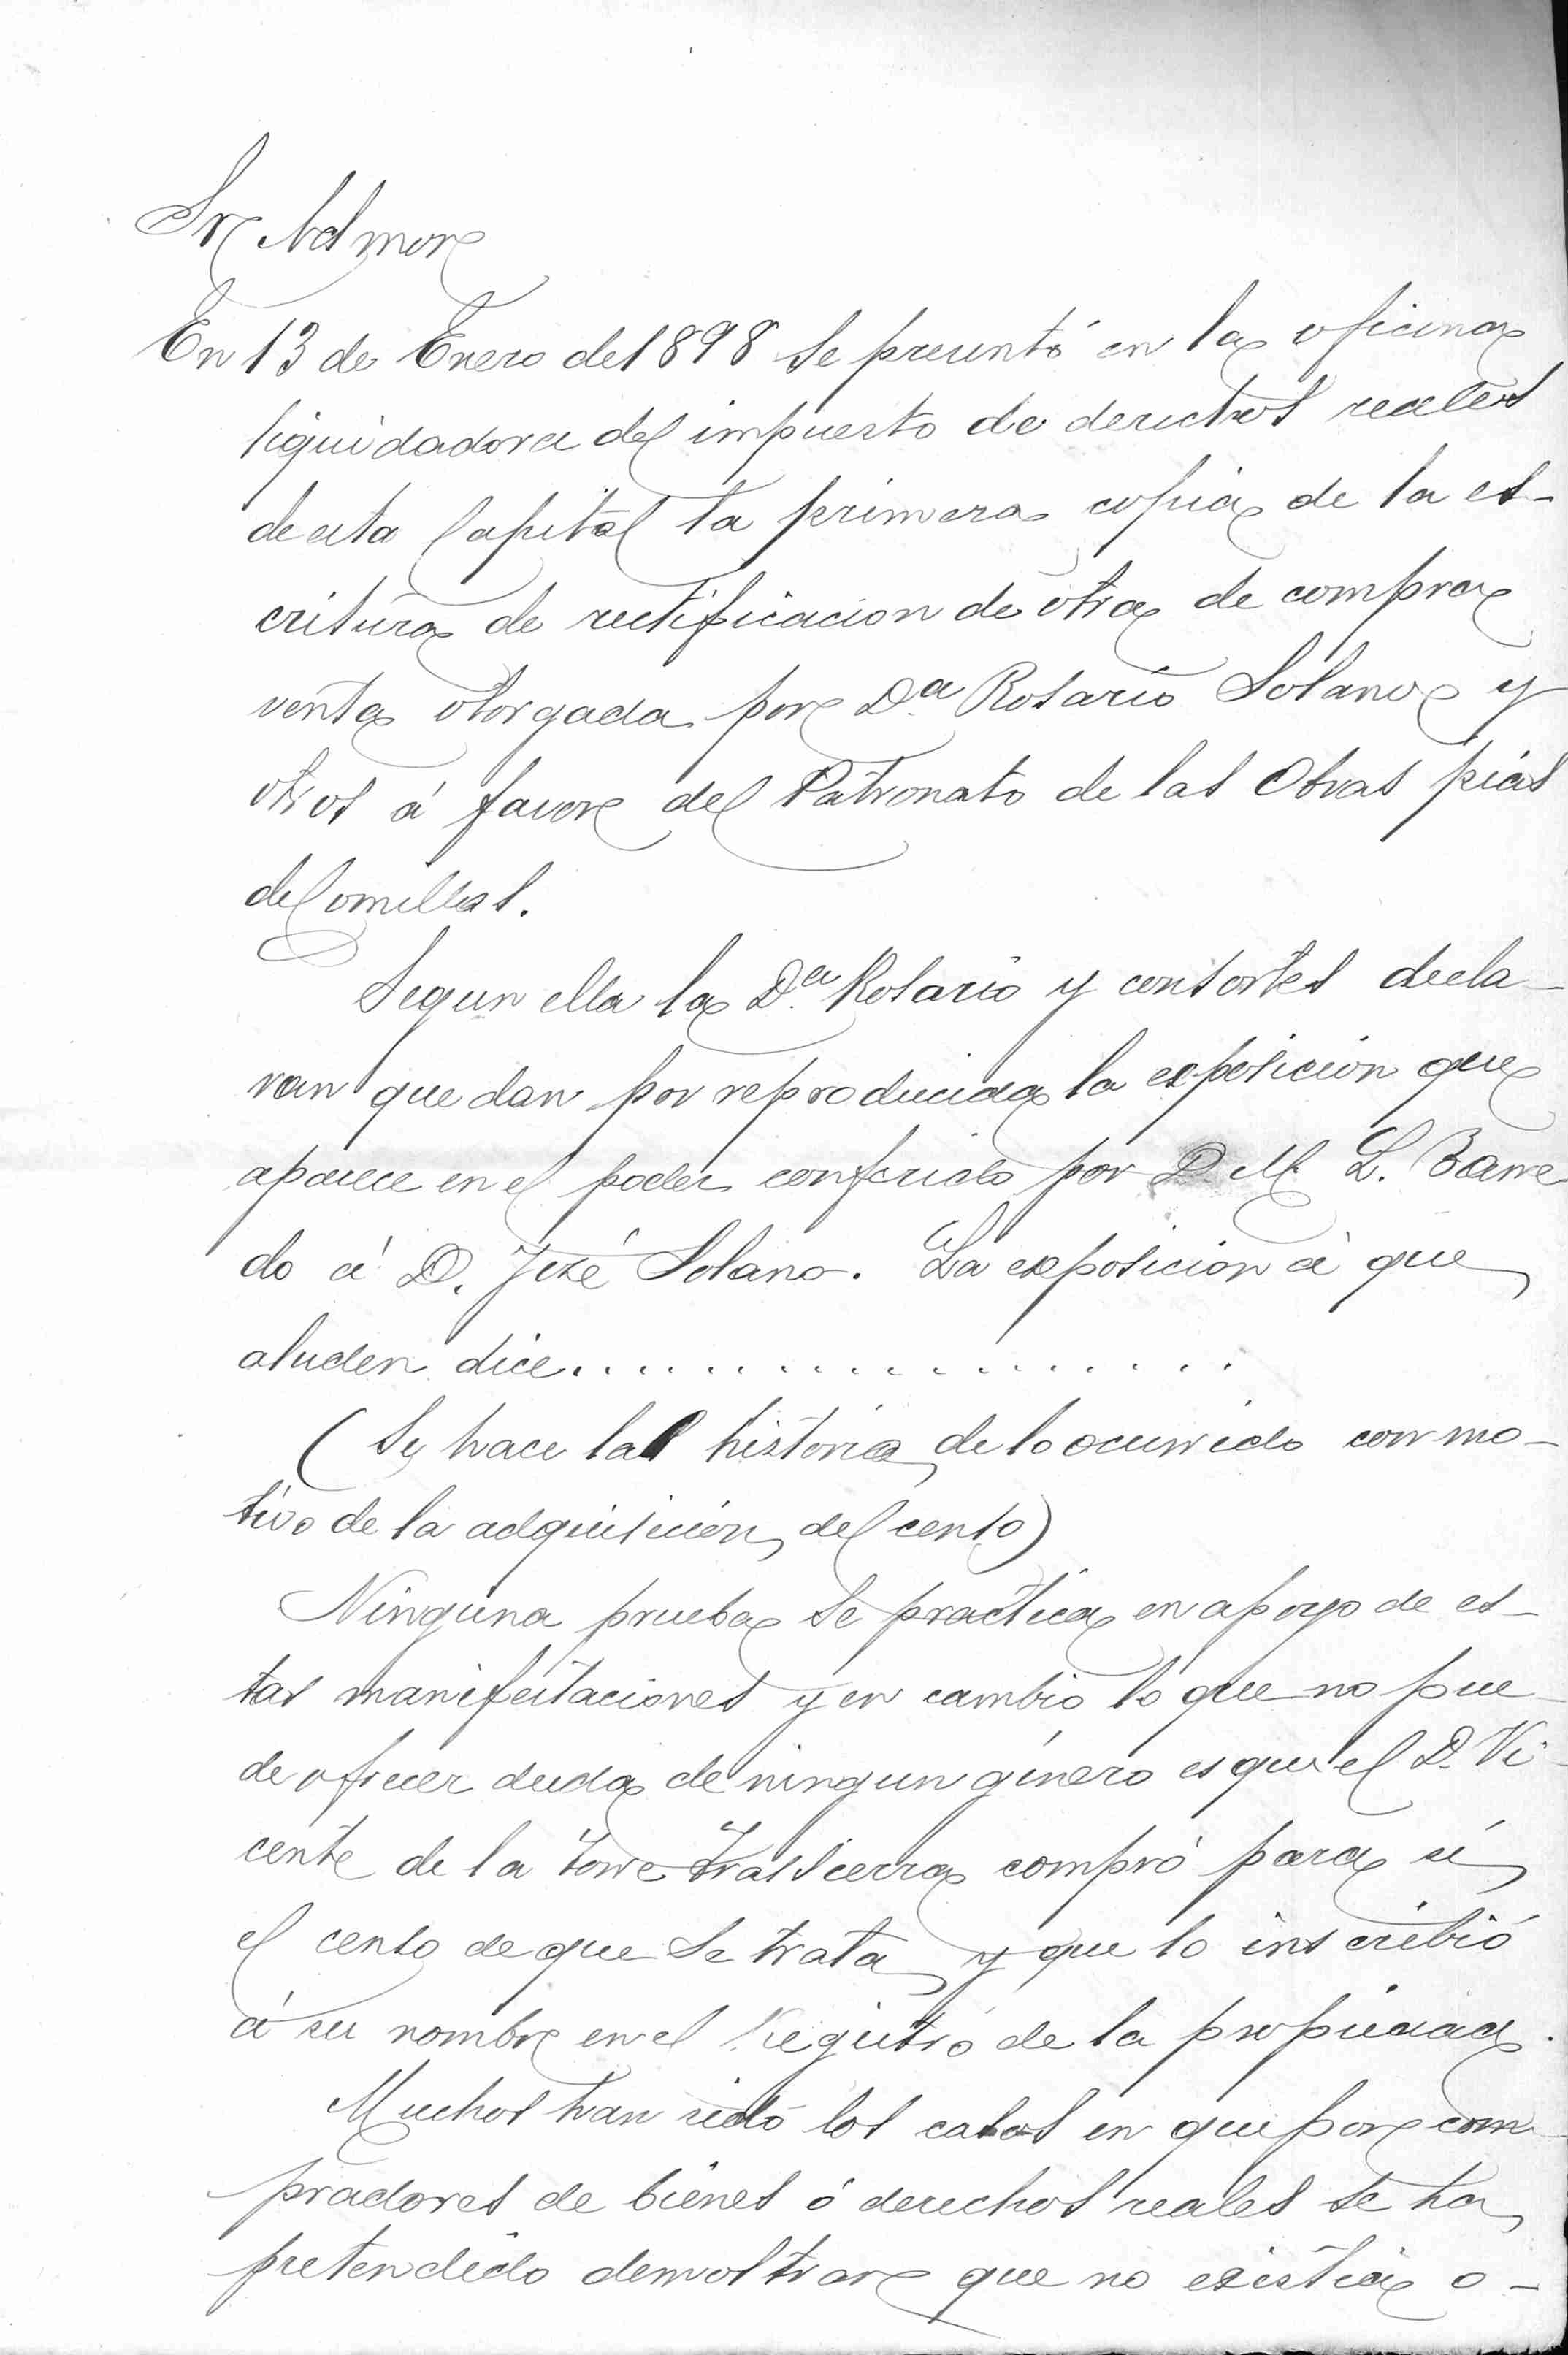 Sr Admor
En 13 de Enero de 1898 se presentó en la oficina
liquidadora del impuesto de derechos reales
de esta Capital la primera copia de la es-
critura de rectificacion de otra de compra
venta otorgada por Dª Rosario Solano y
otros á favor del Patronato de las Obras pias
de Comillas.
Segun ella la Dª Rosario y consortes decla-
ran que dan por reproducida la exposicion que
aparece en el poder conferido por D. M. L. Barre
do á D. José Solano. La exposicion á que
aluden dice....................
(Se hace la historia de lo ocurrido con mo-
tivo de la adquisición del censo)
Ninguna prueba se practica en apoyo de es-
tas manifestaciones y en cambio lo que no pue-
de ofrecer duda de ningun género es que el D. Vi-
cente de la Torre Trassierra compró para sí
el censo de que se trata y que lo inscribió
á su nombre en el Registro de la propiedad.
Muchos han sido los casos en que por com-
pradores de bienes ó derechos reales se ha
pretendido demostrar que no existia o-